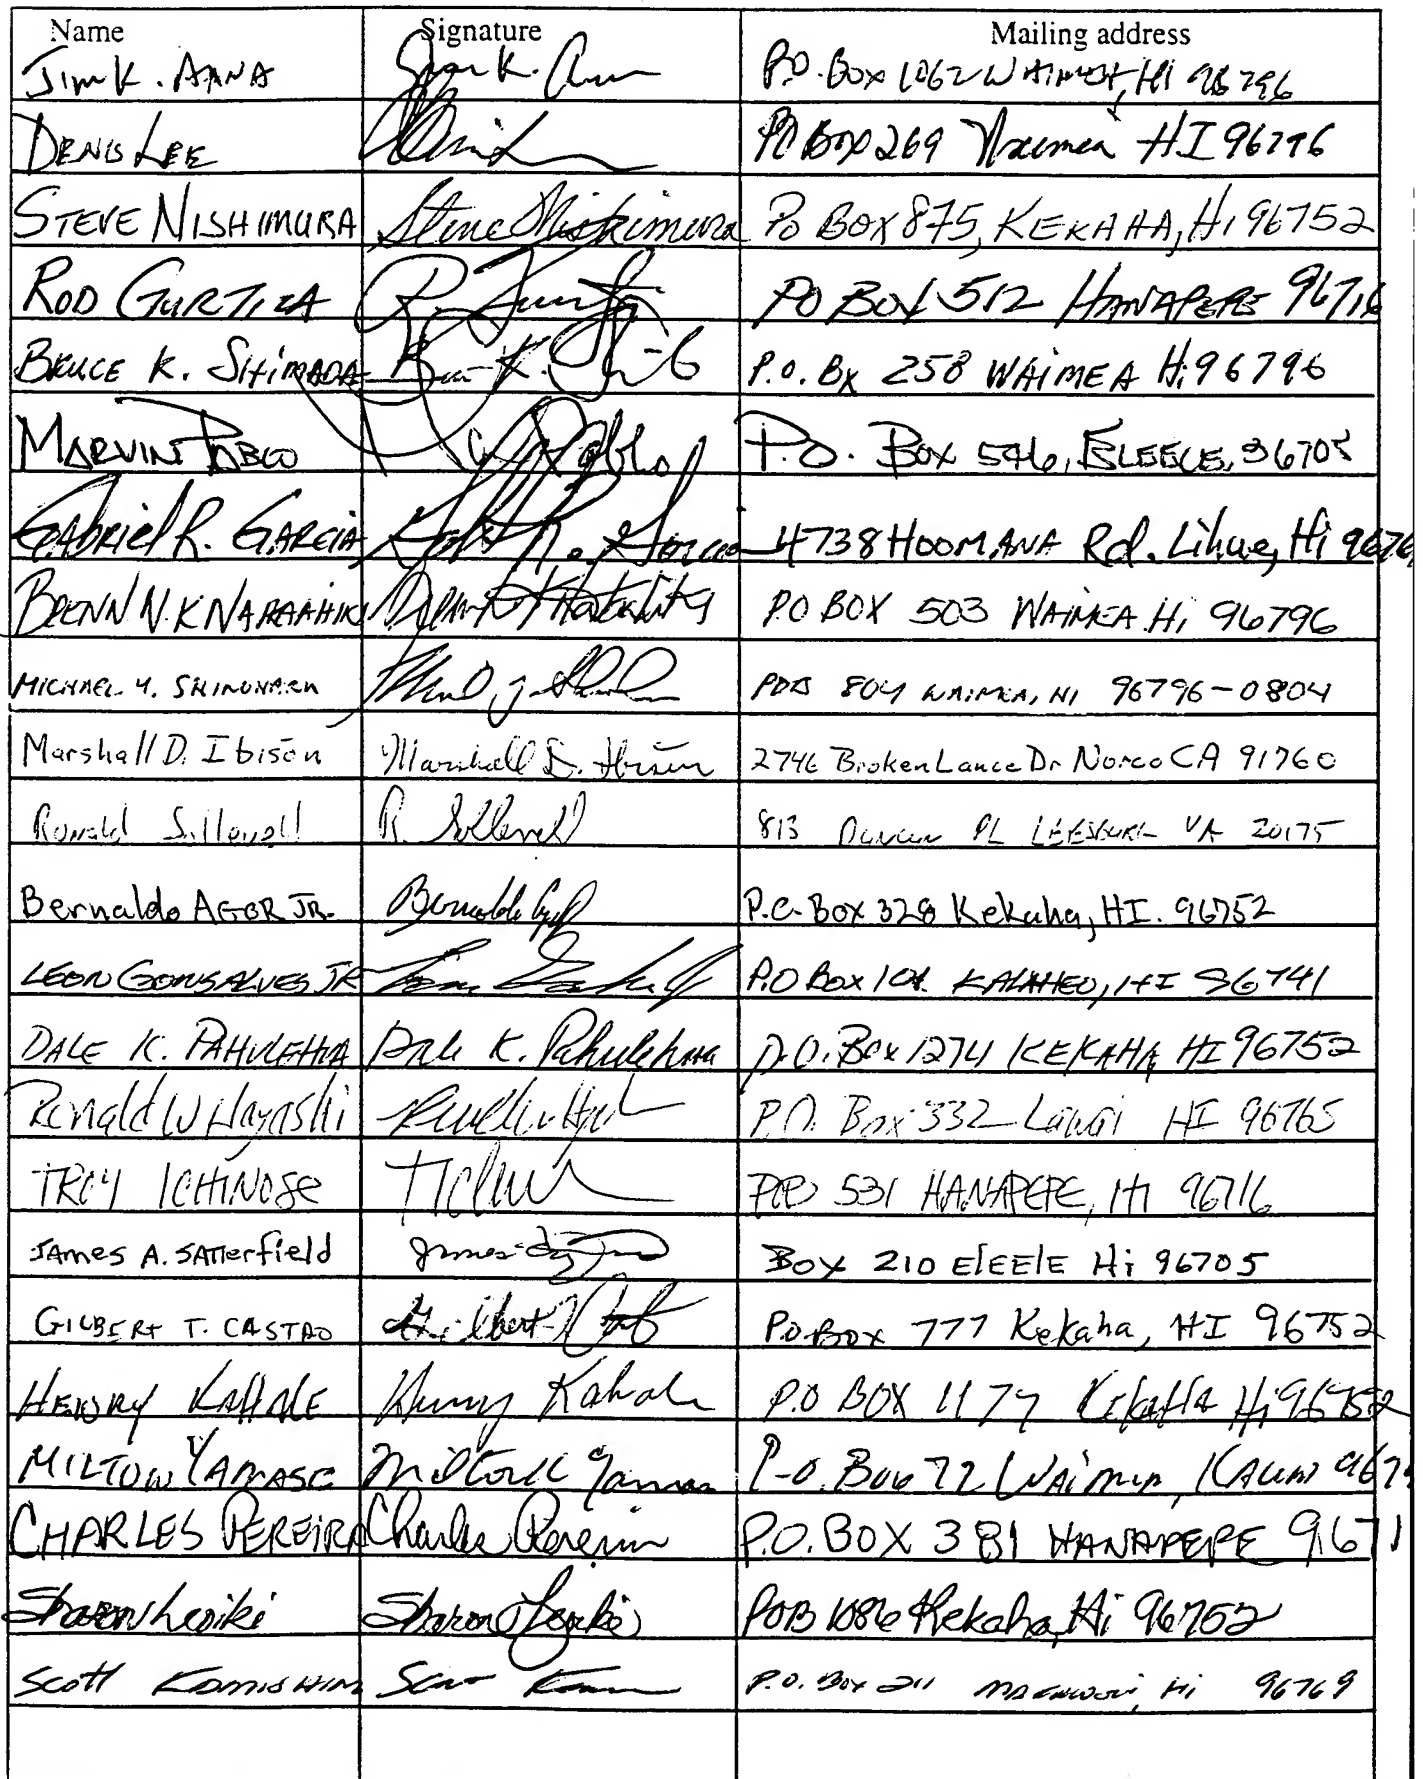 Name Signature Mailing address
Jim K. AANA P.O. Box 1062 WAIMEA, HI 96796
DENIS LEE PO BOX 269 Waimea HI 96796
STEVE NISHIMURA Steve Nishimura PO BOX 875, KEKAHA, Hi 96752
ROD GURTIZA PO BOX 512 HANAPEPE 96716
BRUCE K. SHIMADA P.O. Bx 258 WAIMEA Hi 96796
MARVIN PABLO Pablo P.O. Box 546, ELEELE, 96705
GAbRiEl R. GARCIA 4738 HOOMANA Rd. Lihue, Hi
BRENN N.K PO BOX 503 WAIMEA Hi 96796
MICHAEL Y. SHINOHARA POB 804 WAIMEA, HI 96796-0804
Marshall D. Ibison Marshall D. Ibison 2746 Broken Lance Dr Norco CA 91760
Ronald R. 813 PL LEESBURG VA 20175
Bernaldo AGOR JR. P.O. Box 328 Kekaha, HI. 96752
LEON GONSALVES JR P.O Box KALAHEO, HI 96741
DALE K. PAHULEHUA Dale K. Pahulehua P.O. Box 1274 KEKAHA HI 96752
Ronald W Hayashi P.O. Box 332 Lawai HI 96765
TROY ICHINOSE POB 531 HANAPEPE, HI 96716
JAmes A. SATTerfield James BOX 210 ElEElE Hi 96705
GILBERT T. CASTRO Gilbert P.O. Box 777 Kekaha, HI 96752
HENRY KAHALE Henry Kahale P.O BOX 1177 Kekaha Hi 96752
MILTON YAMASE Milton P.O. Box 72 Waimea, Kauai
CHARLES PEREIRA Charles Pereira P.O. BOX 381 HANAPEPE 9671
Sharon Leoiki Sharon POB 1086 Kekaha, Hi 96752
Scott P.O. Box 211 Hi 96769